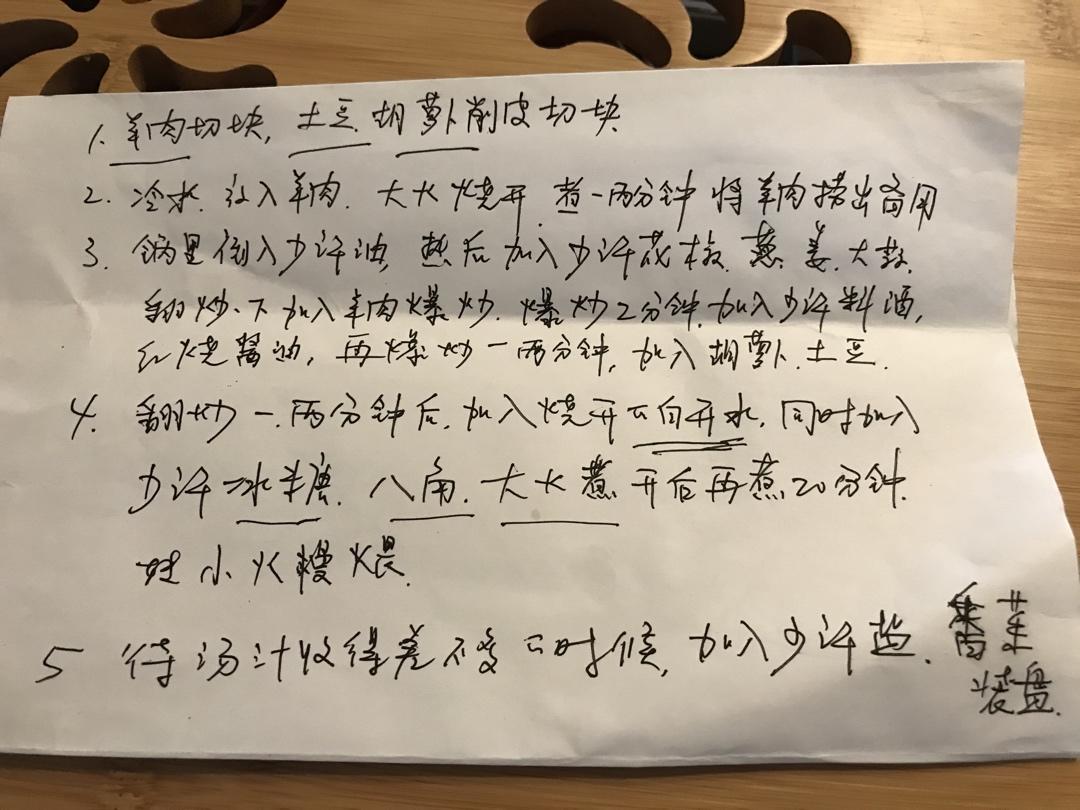 1. 羊肉切块, 土豆.胡萝卜削皮切块
2. 冷水.放入羊肉.大火烧开.煮一两分钟 将羊肉捞出备用
3. 锅里倒入少许油,热后加入少许花椒.葱.姜.大蒜.
翻炒一下加入羊肉爆炒.爆炒2分钟.加入少许料酒,
红烧酱油,再爆炒一两分钟,加入胡萝卜.土豆.
4. 翻炒一两分钟后.加入烧开的白开水.同时加入
少许冰糖.八角.大火煮开后再煮20分钟.
转小火慢煨.
5 待汤汁收得差不多的时候,加入少许盐.香菜
装盘.